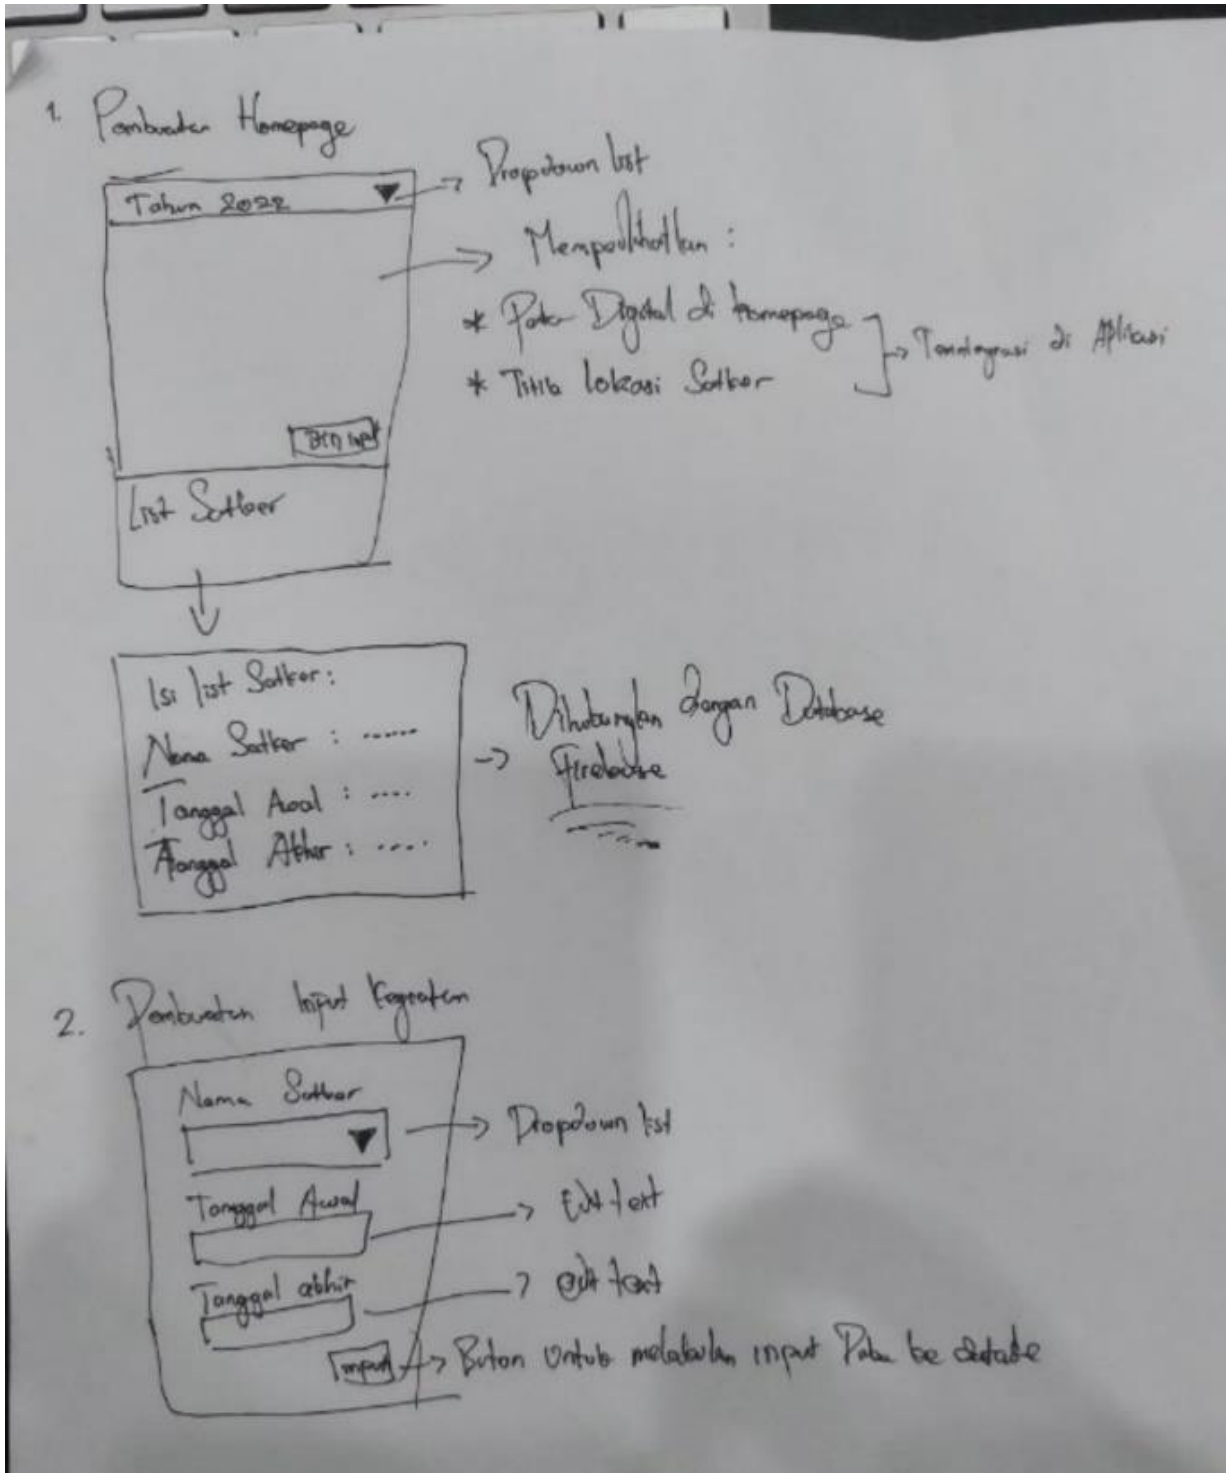 1. Pembuatan Homepage
Tahun 2022
Dropdown list
Memperlihatkan :
* Peta Digital di Homepage
* Titik lokasi Satker
Terintegrasi di Aplikasi
BTN Input
List Satker
Isi list Satker :
Nama Satker : ......
Tanggal Awal : ....
Tanggal Akhir : ....
Dihubungkan dengan Database
Firebase
2. Pembuatan Input Kegiatan
Nama Satker
Dropdown list
Tanggal Awal
Edit text
Tanggal akhir
edit text
Input
Buton Untuk melakukan input Data ke